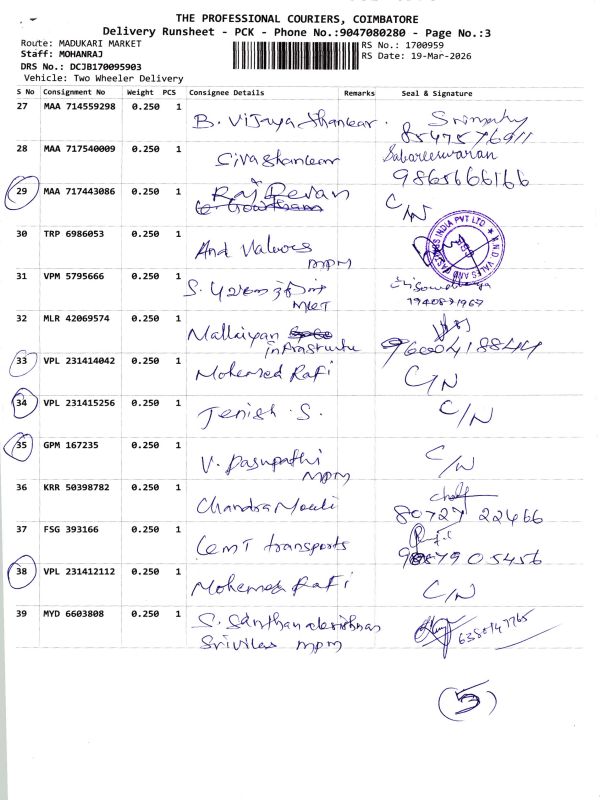 THE PROFESSIONAL COURIERS, COIMBATORE
Delivery Runsheet - PCK - Phone No.:9047080280 - Page No.:3
Route: MADUKARI MARKET
Staff: MOHANRAJ
DRS No.: DCJB170095903
Vehicle: Two Wheeler Delivery
RS No.: 1700959
RS Date: 19-Mar-2026
S No Consignment No Weight PCS Consignee Details Remarks Seal & Signature
27 MAA 714559298 0.250 1 B. Vijaya Shankar. Srimathy
8547576911
28 MAA 717540009 0.250 1 Sivashankar Sabareeswaran
9865666166
29 MAA 717443086 0.250 1 Raj Devan C/N
30 TRP 6986053 0.250 1 And Valves
mpm
31 VPM 5795666 0.250 1 S.
meet
32 MLR 42069574 0.250 1 Mallaiyan
infrastructu 9600418844
33 VPL 231414042 0.250 1 Mohemed Rafi C/N
34 VPL 231415256 0.250 1 Jenish . S. C/N
35 GPM 167235 0.250 1 V. Pasupathi C/N
mpm
36 KRR 50398782 0.250 1 Chandra Mouli
80727 22466
37 FSG 393166 0.250 1 GMT transports
38 VPL 231412112 0.250 1 Mohemed Rafi C/N
39 MYD 6603808 0.250 1 S. Santhanakrishnan
Srivilas mpm 6380147765
5